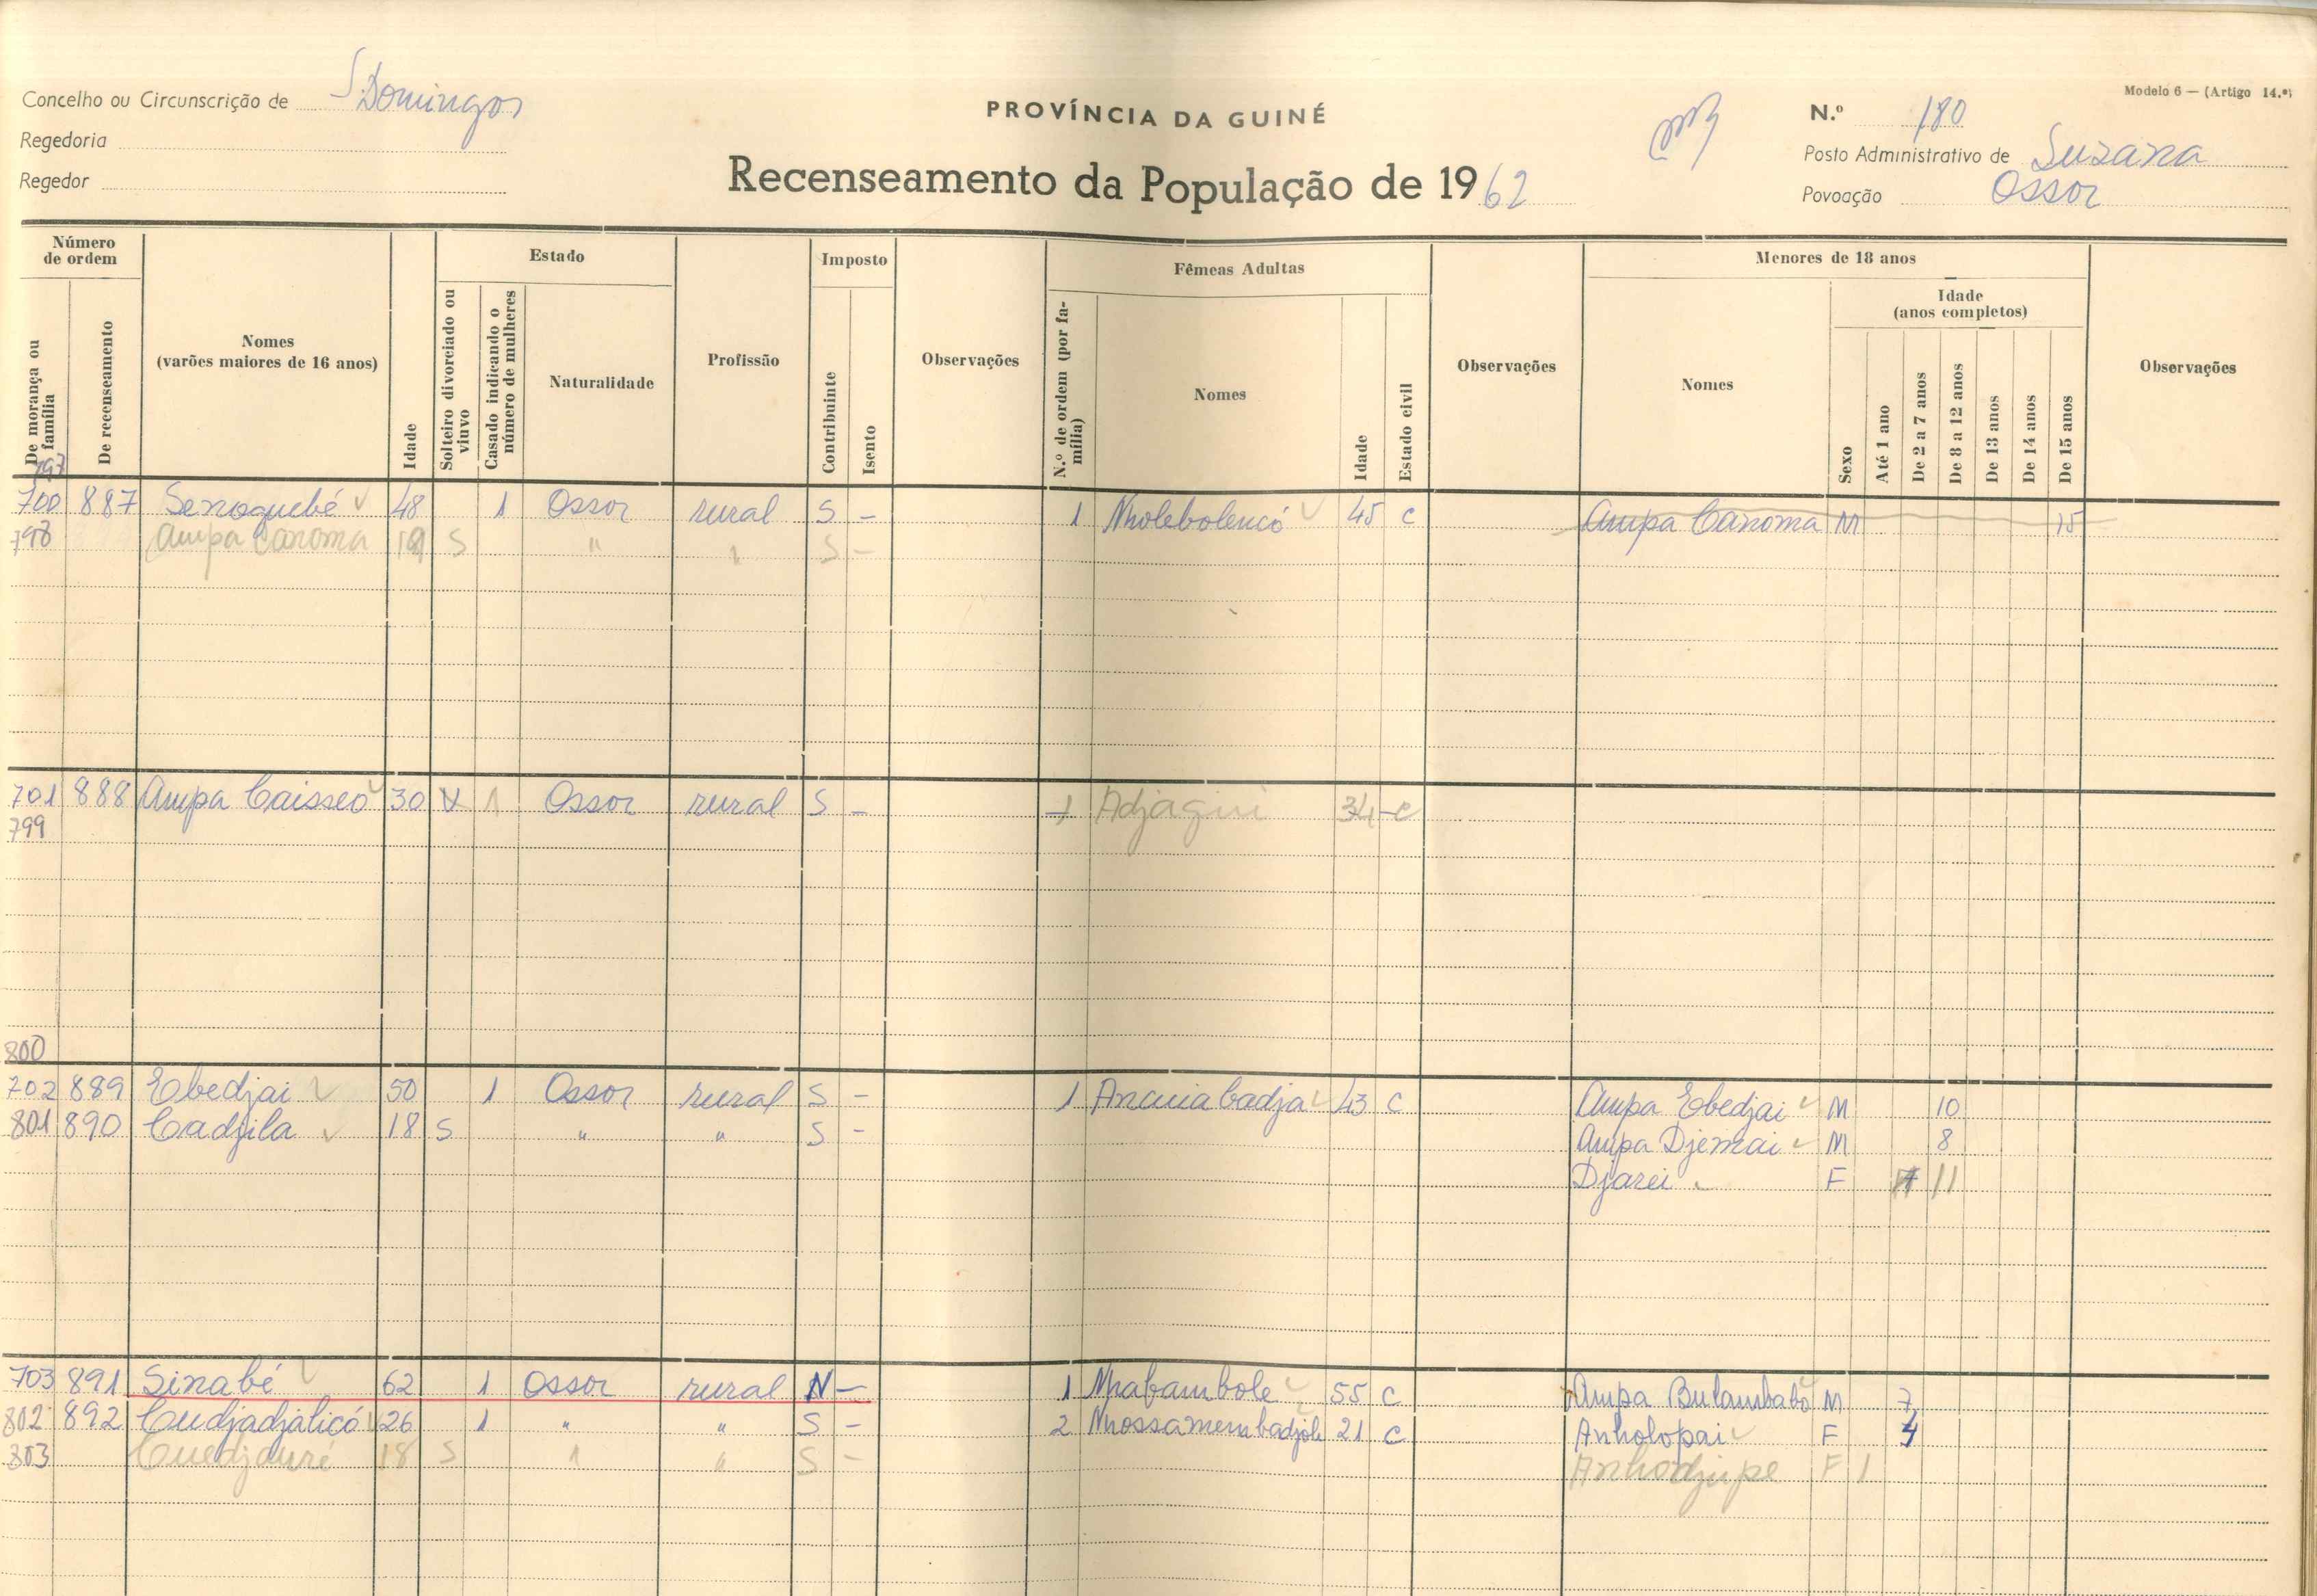 Modelo 6 — (Artigo 14.º)
Concelho ou Circunscrição de S. Domingos
PROVÍNCIA DA GUINÉ
N.º 180
Regedoria
Posto Administrativo de Suzana
Regedor
Recenseamento da População de 1962
Povoação Ossor
Número de ordem
De morança ou família
De recenseamento
Nomes
(varões maiores de 16 anos)
Idade
Estado
Solteiro divorciado ou viuvo
Casado indicando o número de mulheres
Naturalidade
Profissão
Imposto
Contribuinte
Isento
Observações
Fêmeas Adultas
N.º de ordem (por família)
Nomes
Idade
Estado civil
Observações
Menores de 18 anos
Nomes
Sexo
Idade
(anos completos)
Até 1 ano
De 2 a 7 anos
De 8 a 12 anos
De 13 anos
De 14 anos
De 15 anos
Observações
797
700 887 Senoquebé 48 1 Ossor rural S - 1 Nholebolencó 45 C Ampa Canoma M 15
798 Ampa Canoma 19 S " " S -
701 888 Ampa Caisseo 30 V 1 Ossor rural S - 1 Adjagui 34 C
799
800
702 889 Ebedjai 50 1 Ossor rural S - 1 Ancuiabadja 43 C Ampa Ebedjai M 10
801 890 Cadjila 18 S " " S - Ampa Djemai M 8
Djarei F 11
703 891 Sinabé 62 1 Ossor rural N - 1 Nhabambole 55 C Ampa Bulambabo M 7
802 892 Cudjadjalicó 26 1 " " S - 2 Nhossamembadjole 21 C Anholopai F 4
803 Cuedjauré 18 S " " S - Anhodjupe F 1